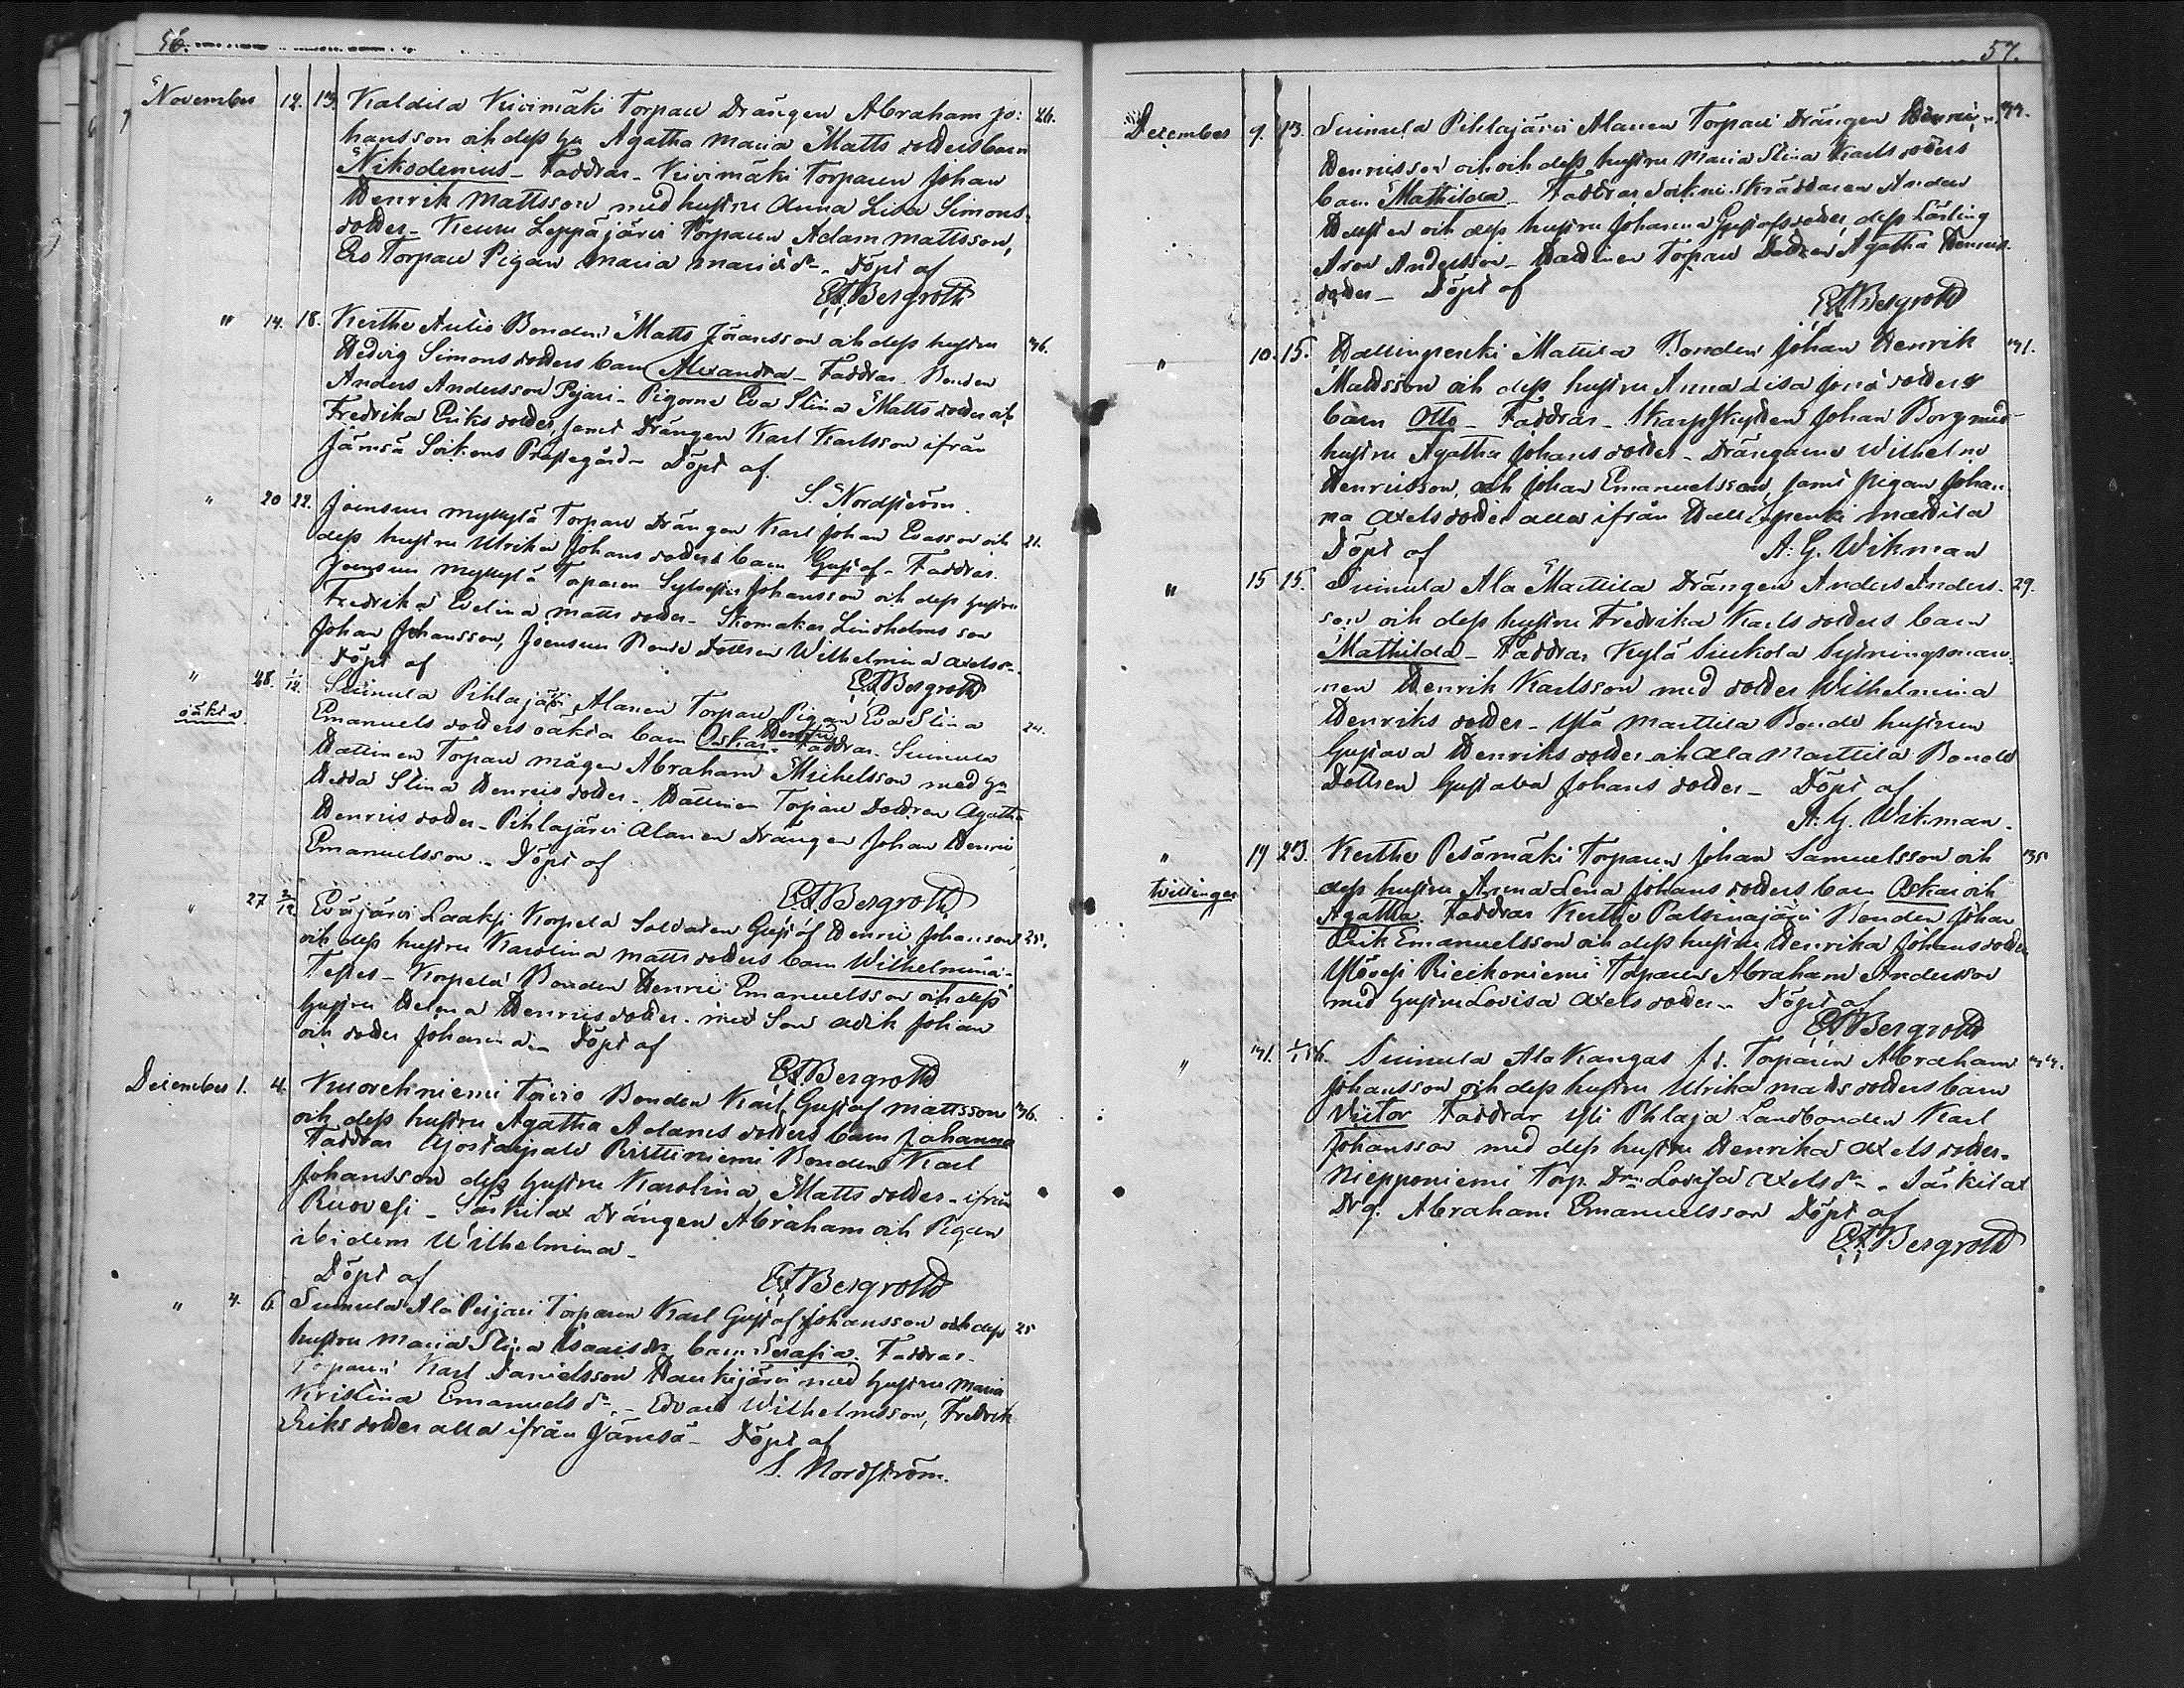 56.
November 12. 13. Kaldila Kivimäki Torpare Drängen Abraham Jo: 26.
hansson och dess hu Agatha Maria Matts dotters barn
Nikodemus - Faddrar - Kivimäki Torparen Johan
Henrik Mattsson med hustru Anna Lisa Simons
dotter - Keuru Leppäjärvi Torparen Adam Mattsson,
Ero Torpare Pigan Maria Mariæ dr - Döpt af
E A Bergroth
" 14. 18. Kerthe Aulis Bonden Matts Göransson och dess hustru 36.
Hedvig Simons dotters barn Alexandra - Faddrar. Bonden
Anders Andersson Pejari - Pigorna Eva Stina Matts dotter och
Fredrika Eriks dotter, samt Drängen Karl Karlsson ifrån
Jämsä Sockens Prestegård - Döpt af
S. Nordström.
" 20 22. Joensuu Mykylä Torpare Drängen Karl Johan Evasson och 21.
dess hustru Ulrika Johans dotters barn Gustaf - Faddrar.
Joensuu Mykylä Torparen Sylvester Johansson och dess hustru
Fredrika Evelina Matts dotter - Skomakar Lindholms son
Johan Johansson, Joensuu Bonde Dottren Wilhelmina Axelsdr
Döpt af
E A Bergroth
" 28. 1/12. Suinula Pihlajäri Alanen Torpare Pigan Eva Stina 24.
oäkta.
Emanuels dotters oäkta barn Oskar Henrik Faddrar. Suinula
Hattinen Torpare mågen Abraham Michelsson med hu
Hedda Stina Henrics dotter. Hattinen Torpare Dottren Agatha
Henrics dotter - Pihlajärvi Alanen Drängen Johan Henric
Emanuelsson - Döpt af
E A Bergroth
" 27 2/12 Eväjärvi Laaksi Korpela Soldaten Gustaf Henric Johansson 25.
och dess hustru Karolina Matts dotters barn Wilhelmina.
Testes - Korpela Bonden Henric Emanuelsson och dess
hustru Helena Henrics dotter. med Son Adik Johan
och dotter Johanna. Döpt af
E A Bergroth
December 1. 4. Kuorehniemi Toivio Bonden Karl Gustaf Mattsson 36.
och dess hustru Agatha Adams dotters barn Johanna
Faddrar Ajostaipale Risttiniemi Bonden Karl
Johansson dess hustru Karolina Matts dotter - ifrån
Ruovesi - Säikilax Drängen Abraham och Pigan
ibidem Wilhelmina -
Döpt af E A Bergroth
" 4. 6. Suinula Ala Peijari Torparen Karl Gustaf Johansson och dess 25
hustru Maria Stina Isaacs dr barn Serafia. Faddrar.
Torparen Karl Danielsson Haukijärvi med hustru Maria
Kristina Emanuels dr - Edvard Wilhelmsson, Fredrik
Eriks dotter alla ifrån Jämsä - Döpt af
S. Nordström.
57.
December 9. 13. Suinula Pihlajärvi Alanen Torpare Drängen Henric
Henricsson och och dess hustru Maria Stina Karls dotters
barn Mathilda - Faddrar Sockne Skräddaren Anders
och dess hustru Johanna Gustafsdotter, dess Lärling
Aron Andersson - Hattinen Torpare Dottren Agatha Henrics
dotter - Döpt af
E A Bergroth
" 10. 15. Hallinpenki Mattila Bonden Johan Henrik 41.
Mattsson och dess hustru Anna Lisa Jonæ dotters
barn Otto - Faddrar - Skarpskytten Johan Borg med
hustru Agatha Johans dotter - Drängarne Wilhelm
Henricsson, och Johan Emanuelsson, samt pigan Johan
na Axels dotter alla ifrån Hallinpenki Mattila
Döpt af A. G. Wikman
" 15 15. Suinula Ala Marttila Drängen Anders Anders- 29.
son och dess hustru Fredrika Karls dotters barn
Mathilda - Faddrar Kylä Siukola Sytningsman
nen Henrik Karlsson med dotter Wilhelmina
Henriks dotter - Ylä Marttila Bonde hustrun
Gustava Henriks dotter och Ala Marttila Bonde
Dottren Gustava Johans dotter - Döpt af
A. G. Wikman.
" 19 23. Kerthe Pesämäki Torparen Johan Samuelsson och 35
Tvillingar
dess hustru Anna Lena Johans dotters barn Oskar och
Agatha. Faddrar Kerthe Palsinajärvi Bonden Johan
Erik Emanuelsson och dess hustru Henrika Johans dotter
Ylövesi Rieikoniemi Torparen Abraham Andersson
med hustru Lovisa Axels dotter - Döpt af
E A Bergroth
" Suinula Ala Kangas f.d. Torparen Abraham
Johansson och dess hustru Ulrika Matts dotters barn
Victor Faddrar Yli Phlaja Landbonden Karl
Johansson med dess hustru Henrika Axels dotter-
Niepponiemi Torp. Drn Lovisa Axels dr - Säikilax
Drg. Abraham Emanuelsson Döpt af
E A Bergroth